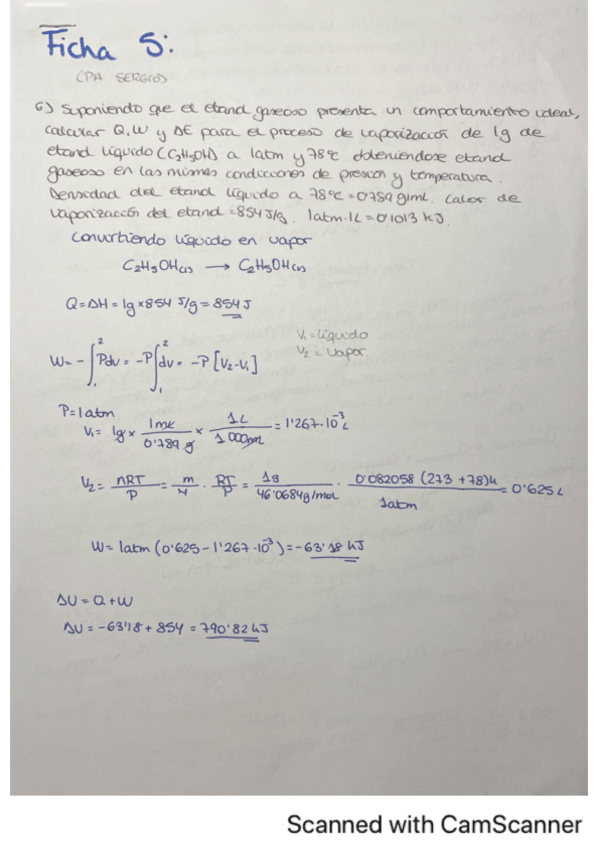 Ficha 5:
(PA SERGIO)
6) Suponiendo que el etanol gaseoso presenta un comportamiento ideal,
calcular Q, W y ΔE para el proceso de vaporización de 1g de
etanol líquido (C2H5OH) a 1atm y 78ºC obteniéndose etanol
gaseoso en las mismas condiciones de presión y temperatura.
Densidad del etanol líquido a 78ºC = 0'789 g/mL. Calor de
vaporización del etanol = 854 J/g. 1atm·1L = 0'1013 kJ.
Convirtiendo líquido en vapor
C2H5OH(l) → C2H5OH(v)
Q = ΔH = 1g × 854 J/g = 854 J
V1 = líquido
V2 = vapor
W = - ∫₁² Pdv = -P ∫₁² dv = -P [V2 - V1]
P = 1atm
V1 = 1g × 1mL / 0'789 g × 1L / 1000mL = 1'267·10⁻³ L
V2 = nRT / P = m / M · RT / P = 1g / 46'0684g/mol · 0'082058 (273 + 78)K / 1atm = 0'625 L
W = 1atm (0'625 - 1'267·10⁻³) = -63'18 kJ
ΔU = Q + W
ΔU = -63'18 + 854 = 790'82 kJ
Scanned with CamScanner